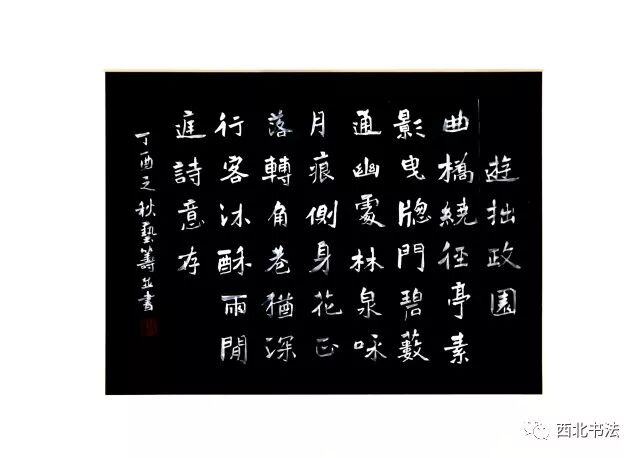 遊拙政園
曲橋繞径亭素
影曳牕門碧藪
通幽處林泉咏
月痕側身花正
落轉角巷猶深
行客沐酥雨閒
庭詩意存
丁酉之秋藝籌並書
西北书法